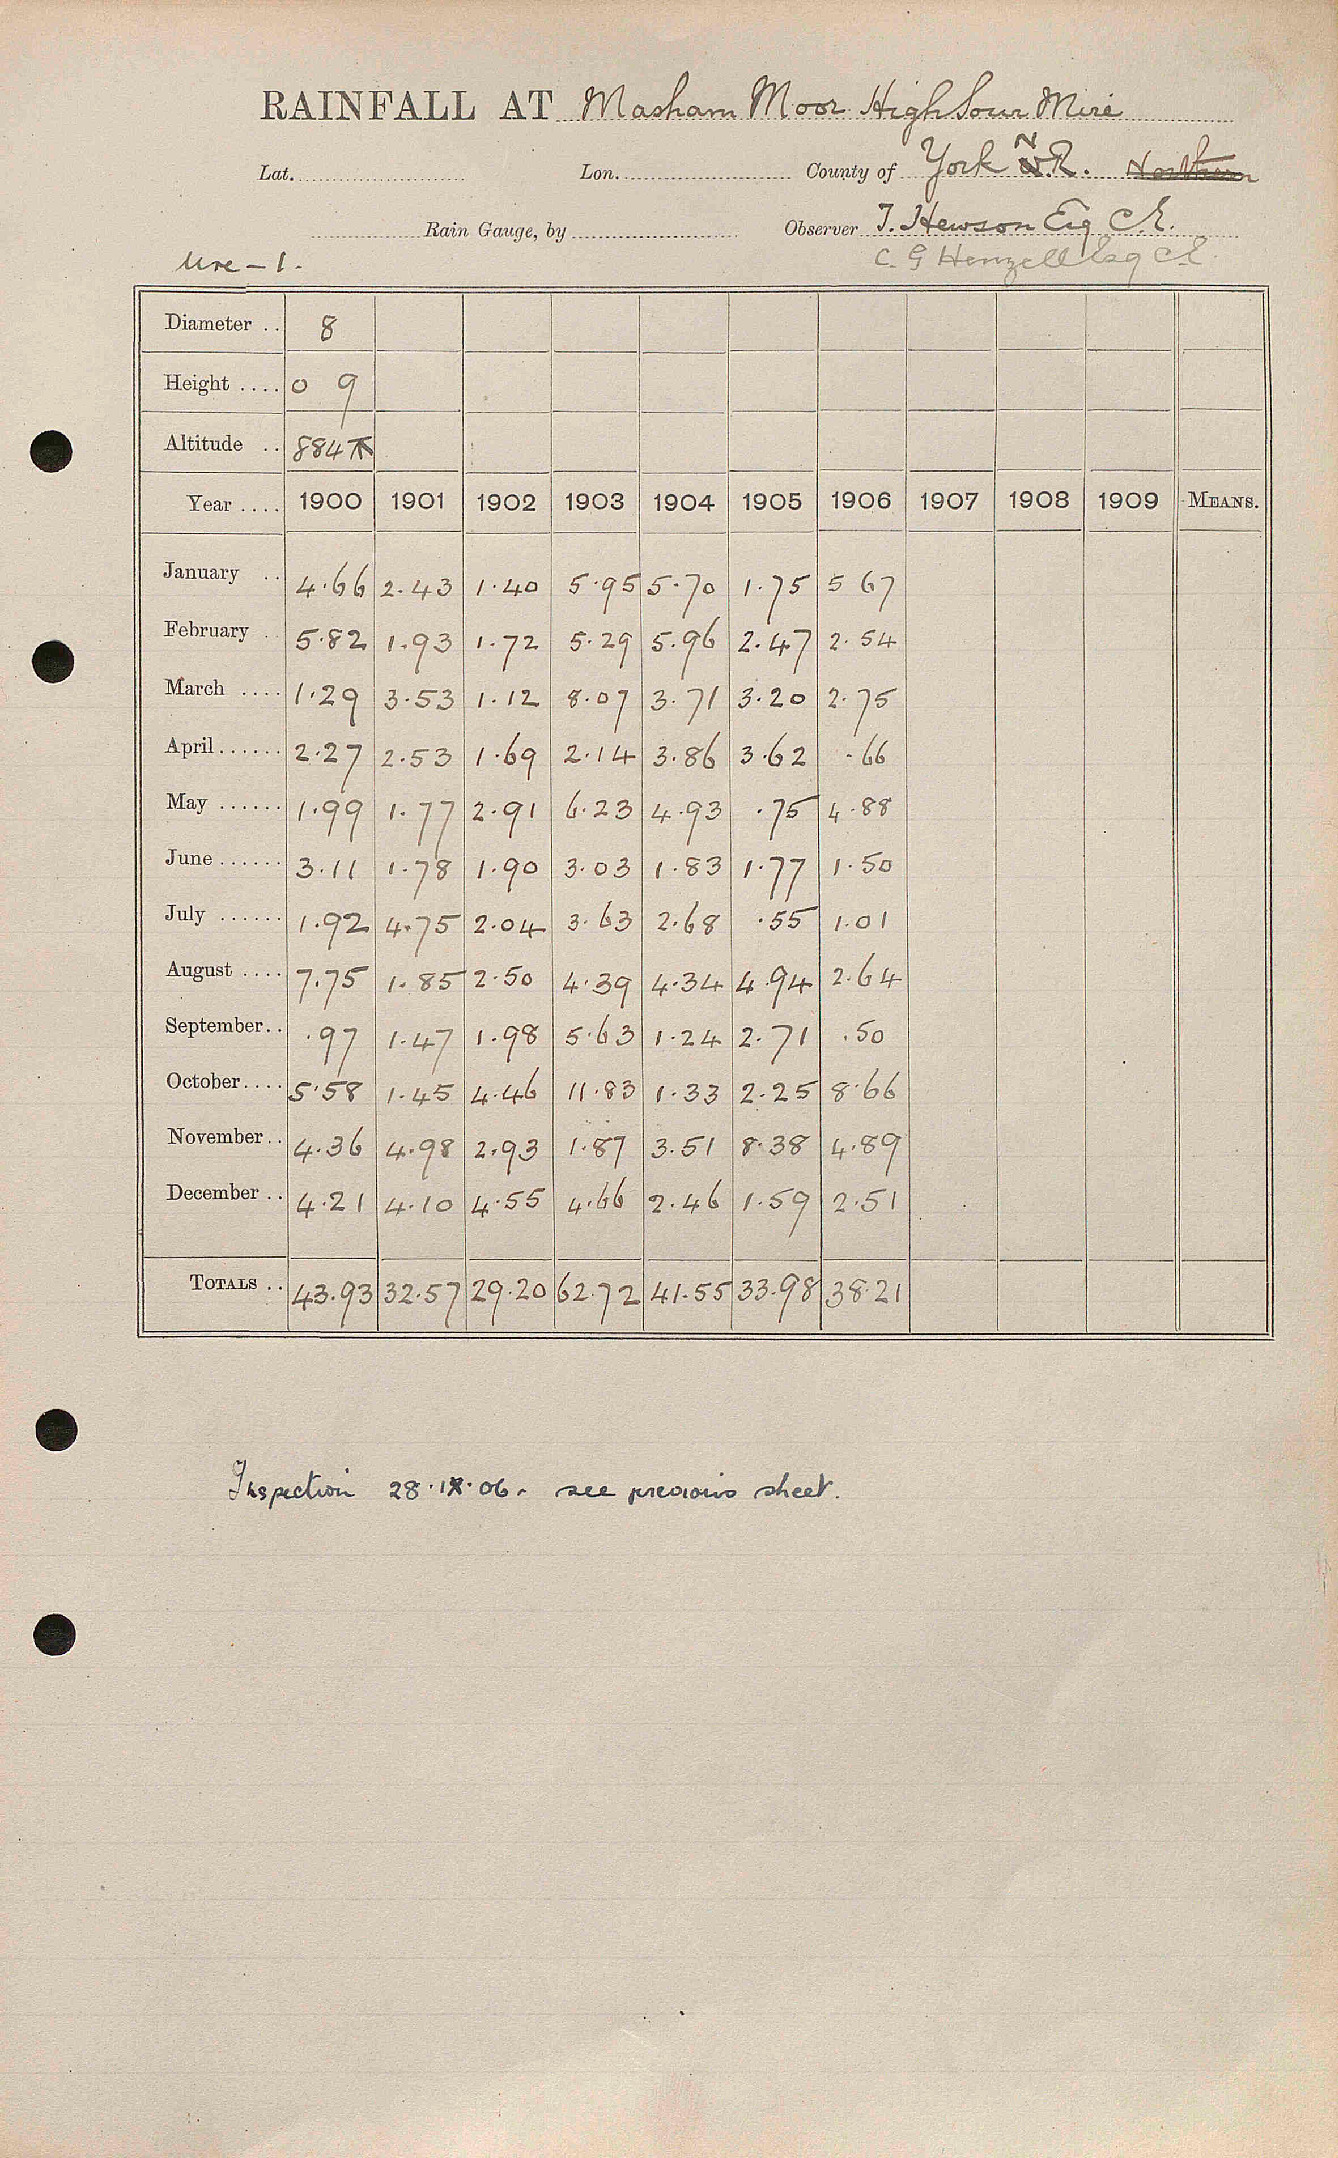 RAINFALL AT Masham Moor High Sour Mire
Lat. Lon. County of York N.R. Northern
Rain Gauge, by Observer T. Hewson Esq C.E.
Ure - 1. C. G Henzell Esq C.E.
Diameter .. 8
Height .... 0 9
Altitude .. 884
Year .... 1900 1901 1902 1903 1904 1905 1906 1907 1908 1909 MEANS.
January .. 4.66 2.43 1.40 5.95 5.70 1.75 5 67
February . 5.82 1.93 1.72 5.29 5.96 2.47 2.54
March .... 1.29 3.53 1.12 8.07 3.71 3.20 2.75
April...... 2.27 2.53 1.69 2.14 3.86 3.62 .66
May ...... 1.99 1.77 2.91 6.23 4.93 .75 4.88
June ...... 3.11 1.78 1.90 3.03 1.83 1.77 1.50
July ...... 1.92 4.75 2.04 3.63 2.68 .55 1.01
August .... 7.75 1.85 2.50 4.39 4.34 4.94 2.64
September.. .97 1.47 1.98 5.63 1.24 2.71 .50
October.... 5.58 1.45 4.46 11.83 1.33 2.25 8.66
November.. 4.36 4.98 2.93 1.87 3.51 8.38 4.89
December .. 4.21 4.10 4.55 4.66 2.46 1.59 2.51
TOTALS .. 43.93 32.57 29.20 62.72 41.55 33.98 38.21
Inspection 28.IX.06. see previous sheet.